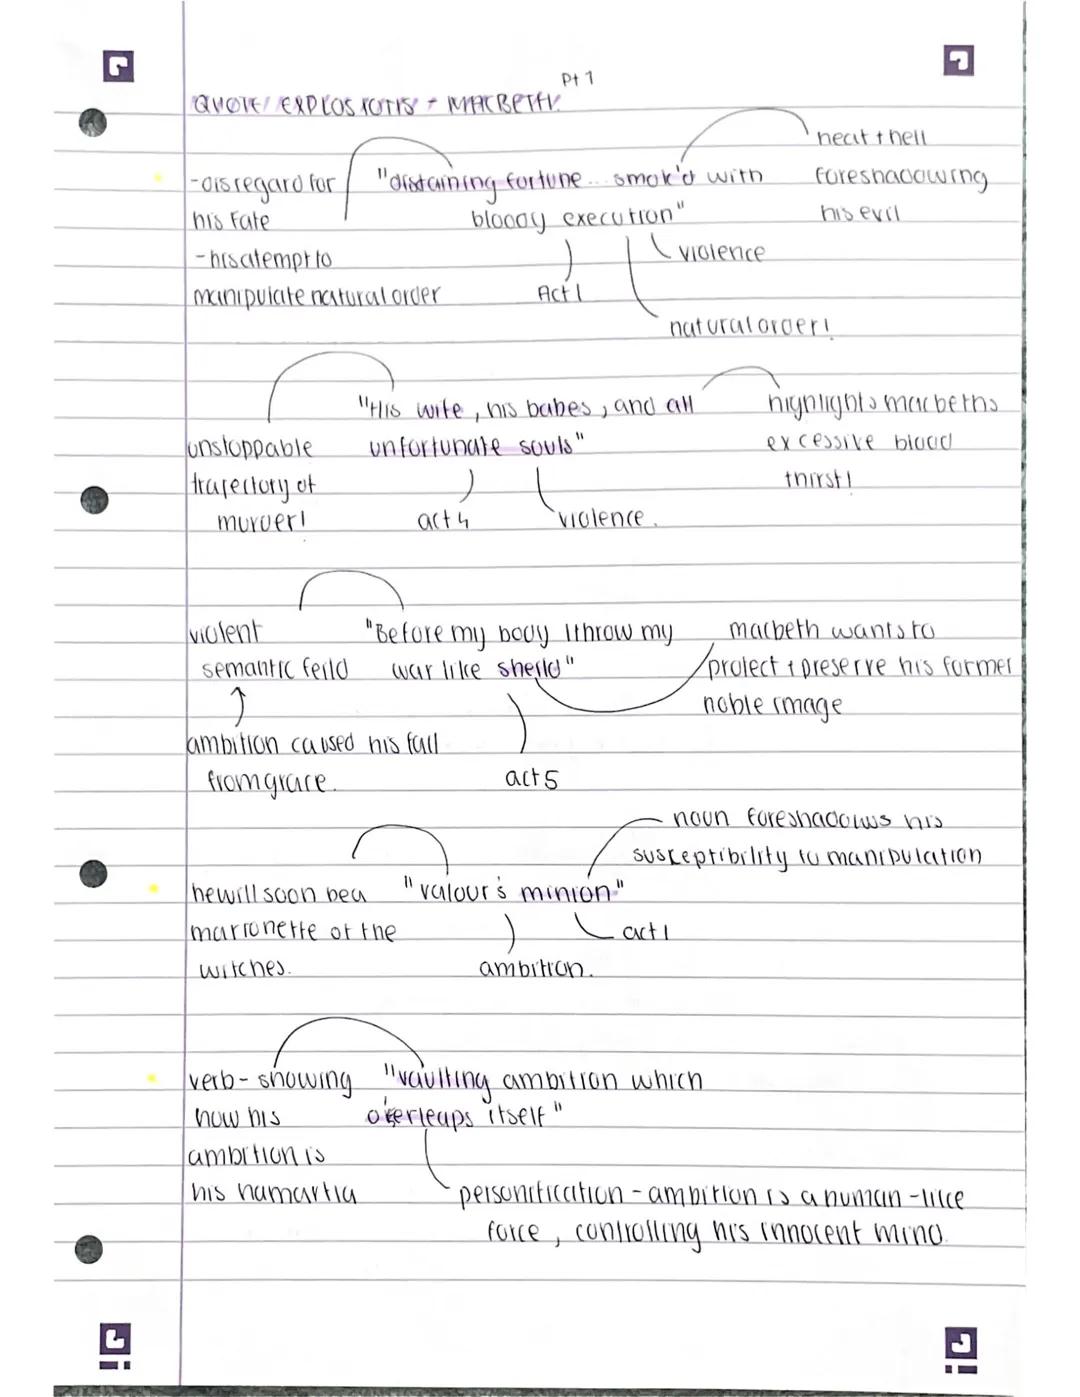 Pt 1
QUOTE EXPLOSIONS - MACBETH
heat + hell
-disregard for "distaining fortune... smok'd with foreshadowing
his fate bloody execution" his evil
-his atempt to violence
manipulate natural order Act 1
natural order!
"His wife, his babes, and all highlights macbeths
unstoppable unfortunate souls" excessive blood
trajectory of thirst!
murder! act 4 violence.
violent "Before my body I throw my macbeth wants to
semantic feild war like sheild" protect + preserve his former
noble image
ambition caused his fall
from grace. act 5
noun foreshadows his
susceptibility to manipulation
he will soon be a "valour's minion"
marionette of the act 1
witches. ambition.
verb - showing "vaulting ambition which
how his o'erleaps itself"
ambition is
his hamartia personification - ambition is a human - like
force, controlling his innocent mind.